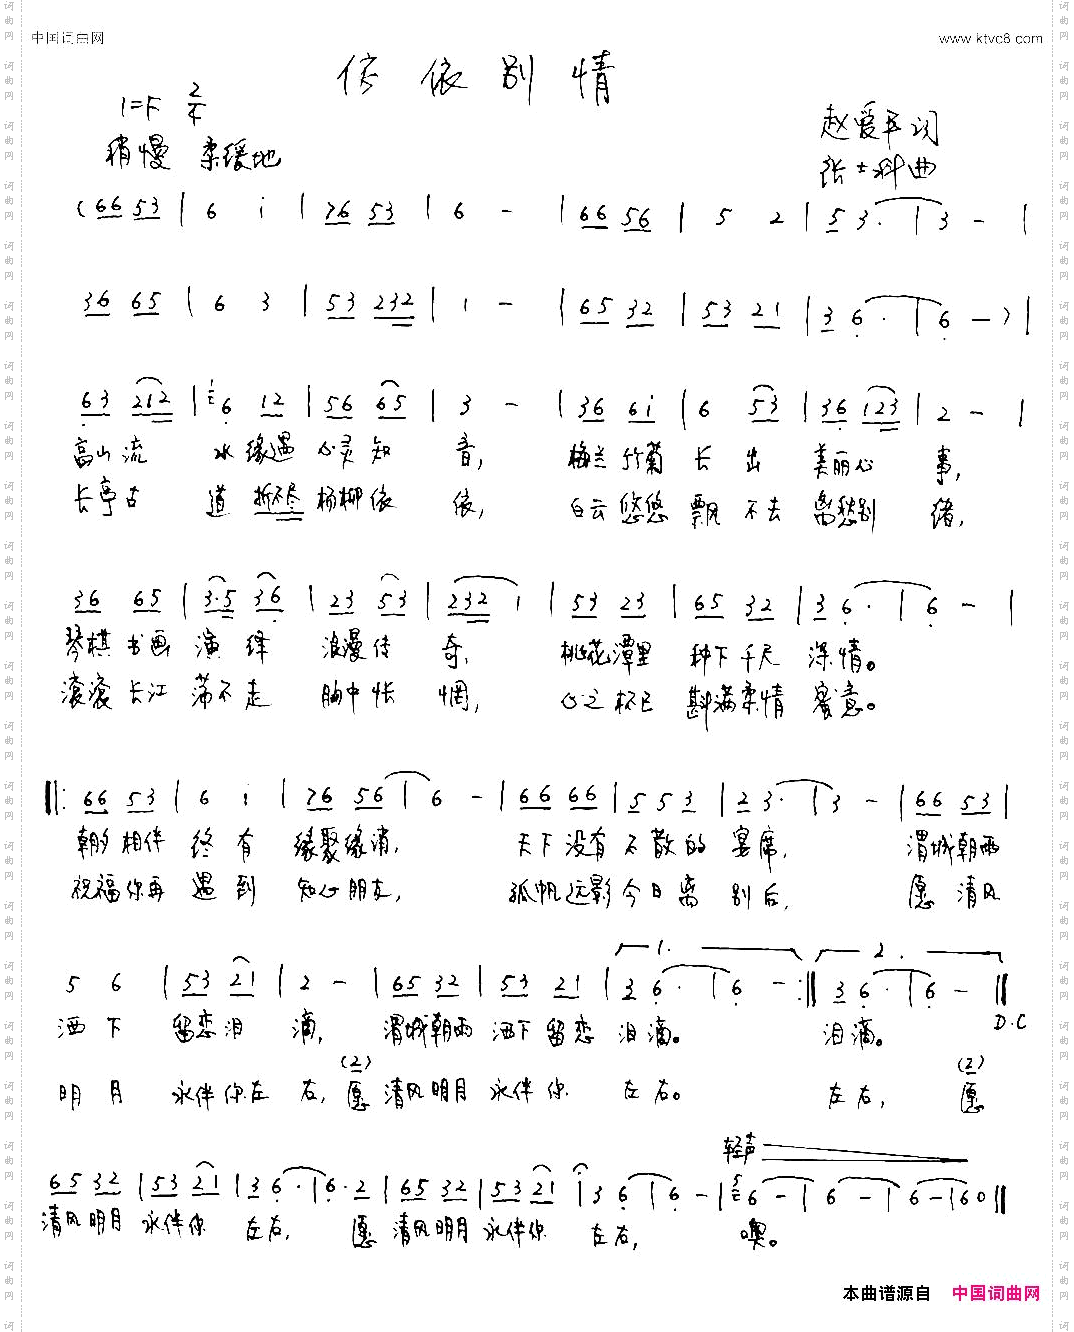 中国词曲网
www.ktvc8.com
依依别情
1=F 2/4
稍慢 柔缓地
赵爱平词
张士科曲
(66 53 | 6 i | 76 53 | 6 - | 66 56 | 5 2 | 5 3· | 3 - |
36 65 | 6 3 | 53 232 | 1 - | 65 32 | 53 21 | 3 6· | 6 -) |
63 212 | 6 12 | 56 65 | 3 - | 36 6i | 6 53 | 36 123 | 2 - |
高山流 水缘遇 心灵知 音, 梅兰竹菊 长出 美丽心 事,
长亭古 道折不尽 杨柳依 依, 白云悠悠 飘不去 离愁别 绪,
36 65 | 3·5 36 | 23 53 | 232 1 | 53 23 | 65 32 | 3 6· | 6 - |
琴棋书画 演绎 浪漫传 奇, 桃花潭里 种下千尺 深情。
滚滚长江 荡不走 胸中怅 惘, 心之杯已 斟满柔情 蜜意。
‖: 66 53 | 6 i | 76 56 | 6 - | 66 66 | 5 5 3 | 23· | 3 - | 66 53 |
朝夕相伴 终有 缘聚缘消, 天下没有 不散的 宴席, 渭城朝雨
祝福你再 遇到 知心朋友, 孤帆远影 今日离 别后, 愿清风
1. 2.
5 6 | 53 21 | 2 - | 65 32 | 53 21 | 3 6· | 6 - :‖ 3 6· | 6 - ‖
D.C
洒下 留恋泪 滴, 渭城朝雨 洒下留恋 泪滴。 泪滴。
(2) (2)
明月 永伴你左 右, 愿清风明月 永伴你 左右。 左右, 愿
轻声
65 32 | 53 21 | 3 6· | 6· 2 | 65 32 | 53 21 | 3 6 | 6 - | 6 - | 6 - | 6 - | 60 ‖
清风明月 永伴你 左右, 愿清风明月 永伴你 左右, 噢。
本曲谱源自 中国词曲网